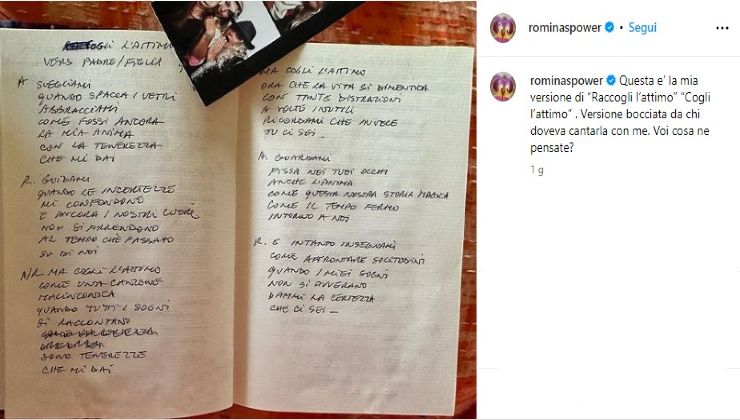 COGLI L'ATTIMO
VERS PADRE/FIGLIA
A SVEGLIAMI
QUANDO SPACCA I VETRI
ABBRACCIAMI
COME FOSSI ANCORA
LA MIA ANIMA
CON LA TENEREZZA
CHE MI DAI
R. GUIDAMI
QUANDO LE INCERTEZZE
MI CONFONDONO
E ANCORA I NOSTRI CUORI
NON SI ARRENDONO
AL TEMPO CHE PASSATO
SU DI NOI
A/R MA COGLI L'ATTIMO
COME UNA CANZONE
MALINCONICA
QUANDO TUTTI I SOGNI
SI RACCONTANO
SONO TENEREZZE
CHE MI DAI
MA COGLI L'ATTIMO
ORA CHE LA VITA SI DIMENTICA
CON TANTE DISTRAZIONI
A VOLTE INUTILI
RICORDAMI CHE INVECE
TU CI SEI -
A. GUARDAMI
FISSA NEI TUOI OCCHI
ANCHE L'ANIMA
COME QUESTA NOSTRA STORIA MAGICA
COME IL TEMPO FERMO
INTORNO A NOI
R. E INTANTO INSEGNAMI
COME AFFRONTARE SOLITUDINI
QUANDO I MIEI SOGNI
NON SI AVVERANO
DAMMI LA CERTEZZA
CHE CI SEI -
rominaspower • Segui
rominaspower Questa e' la mia
versione di "Raccogli l'attimo" "Cogli
l'attimo" . Versione bocciata da chi
doveva cantarla con me. Voi cosa ne
pensate?
1 g